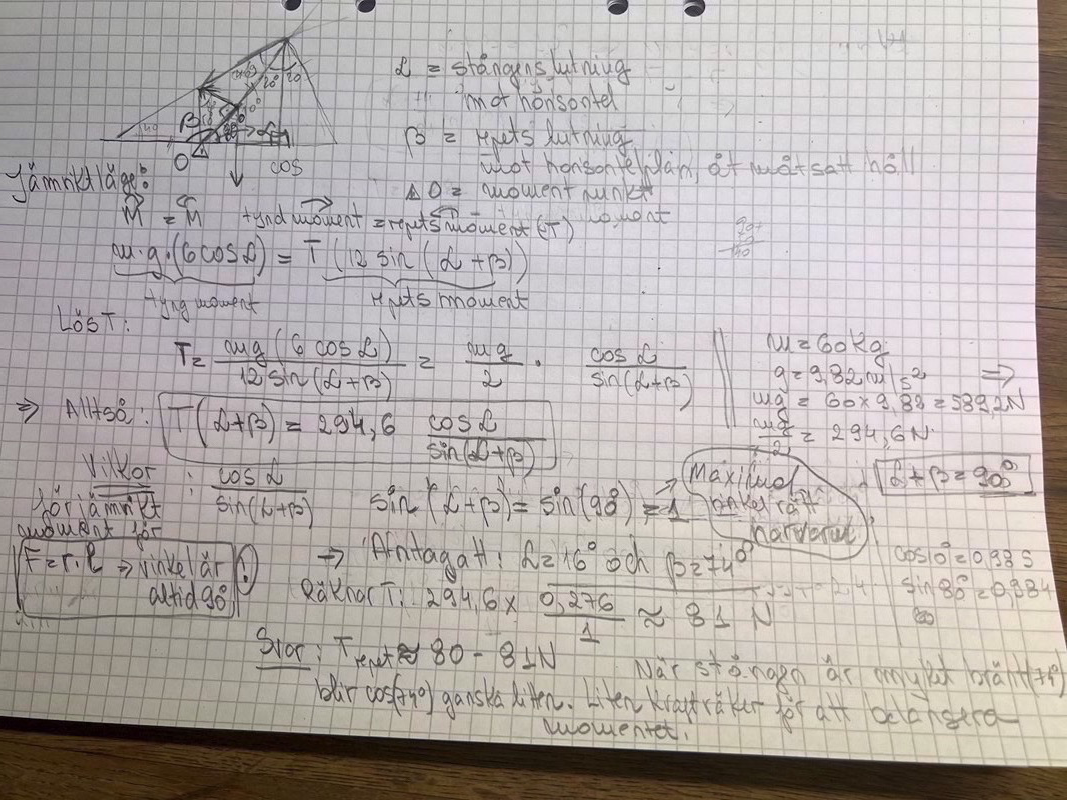 α = stångens lutning
mot horisontel
β = repets lutning
mot horisontelplan, åt motsatt håll
Δ O = moment punkt
β
40
20° 20
O
cos
Jämnktläge:
M = M tyndmoment = repets moment (T) moment
m·g·(6cosα) = T (12 sin (α+β))
tyngmoment repets moment
Lös T:
T = mg (6 cosα) / 12 sin(α+β) = mg / 2 · cosα / sin(α+β)
m = 60kg
g = 9,82m/s²
⇒
mg = 60×9,82 = 589,2N
mg / 2 = 294,6N
⇒ Alltså: T(α+β) = 294,6 cosα / sin(α+β)
α+β = 90°
Vilkor : cosα / sin(α+β)
för jämnkt
moment för
sin (α+β) = sin (90) = 1
Maximal
vinkelrätt
F = r·l → vinkel är
altid 90
⇒ Antag att: α=16° och β=74°
Räknar T: 294,6 × 0,276 / 1 ≈ 81 N
sin 80° = 0,984
Svar: T repet ≈ 80 - 81N
När stången är myket brält (74°)
blir cos(74°) ganska liten. Liten kraft räker för att balansera
momentet.